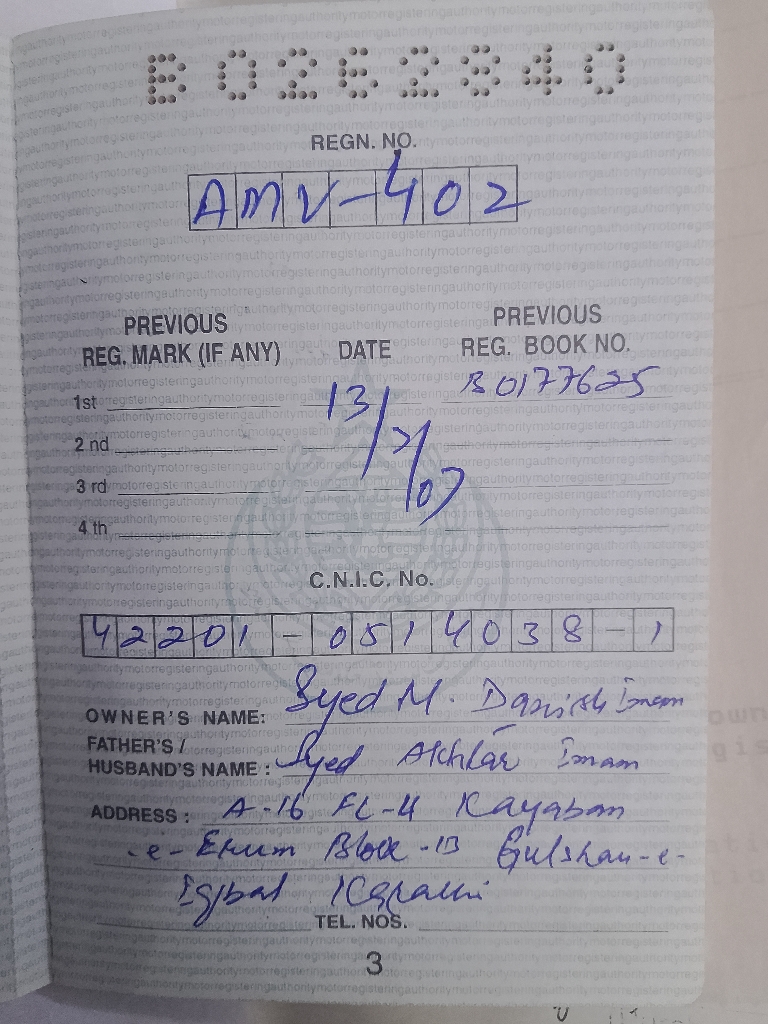 B0262840
REGN. NO.
AMV-402
PREVIOUS REG. MARK (IF ANY) DATE PREVIOUS REG. BOOK NO.
1st 13/2/07 B0177625
2 nd
3 rd
4 th
C.N.I.C. No.
42201-0514038-1
OWNER'S NAME: Syed M. Danish Imam
FATHER'S /
HUSBAND'S NAME : Syed Akhtar Imam
ADDRESS : A-16 FL-4 Kayaban
-e- Erum Block-13 Gulshan-e-
Iqbal Karachi
TEL. NOS.
3